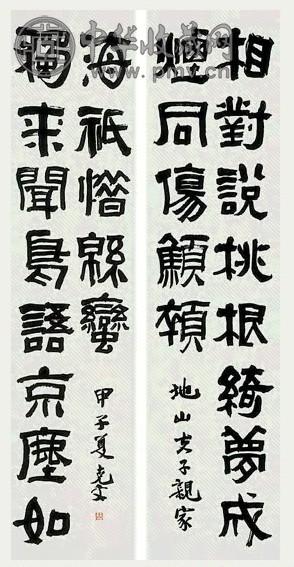 相對說桃根綺夢成
煙同傷顦顇
地山夫子親家
獨來聞鳥語京塵如
海祇憯緜蠻
甲子夏克文
中华收藏网
www.pmv.cn